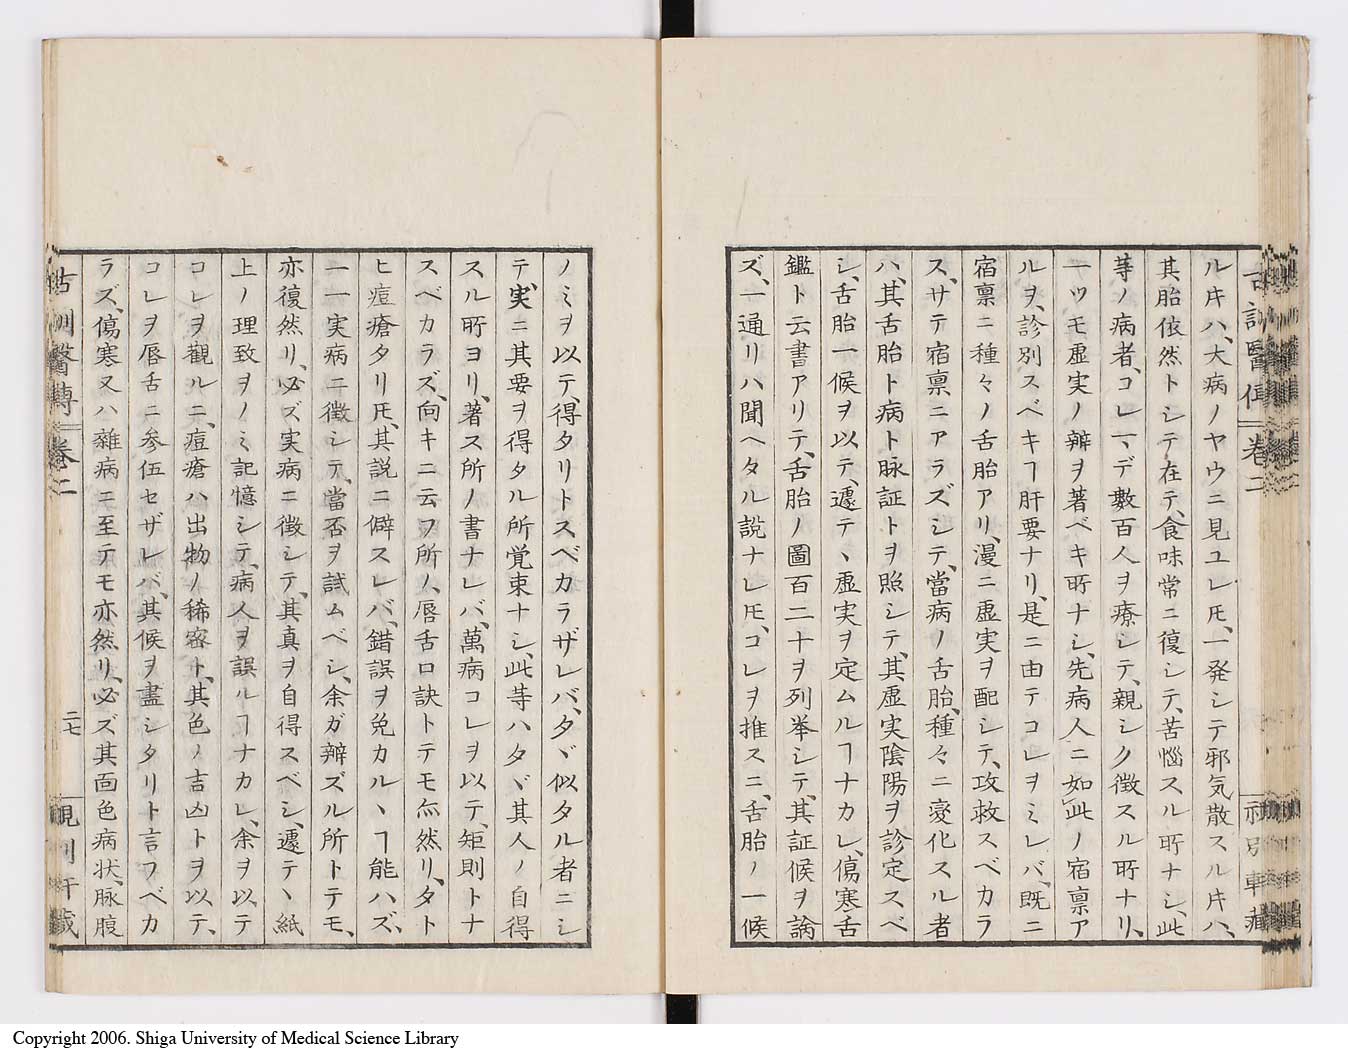 ルㇳキハ、大病ノヤウニ見ユレㇳモ、一発シテ邪気散スルㇳキハ、
其胎依然トシテ在テ、食味常ニ復シテ、苦惱スル所ナシ、此
等ノ病者、コレマデ數百人ヲ療シテ、親シク徴スル所ナリ、
一ツモ虚実ノ辨ヲ著ベキ所ナシ、先病人ニ如此ノ宿禀ア
ルヲ、診別スベキヿ肝要ナリ、是ニ由テコレヲミレバ、既ニ
宿禀ニ種々ノ舌胎アリ、漫ニ虚実ヲ配シテ、攻救スベカラ
ス、サテ宿禀ニアラズシテ、當病ノ舌胎、種々ニ変化スル者
ハ、其舌胎ト病ト脉証トヲ照シテ、其虚実陰陽ヲ診定スベ
シ、舌胎一候ヲ以テ、遽テヽ虚実ヲ定ムルヿナカレ、傷寒舌
鑑ト云書アリテ、舌胎ノ圖百二十ヲ列挙シテ、其証候ヲ論
ズ、一通リハ聞ヘタル説ナレㇳモ、コレヲ推スニ、舌胎ノ一候
ノミヲ以テ、得タリトスベカラザレバ、タヾ似タル者ニシ
テ、実ニ其要ヲ得タル所覚束ナシ、此等ハタヾ其人ノ自得
スル所ヨリ、著ス所ノ書ナレバ、萬病コレヲ以テ、矩則トナ
スベカラズ、向キニ云フ所ノ、唇舌口訣トテモ亦然リ、タト
ヒ痘瘡タリㇳモ、其説ニ僻スレバ、錯誤ヲ免カルヽヿ能ハズ、
一一実病ニ徴シテ、當否ヲ試ムベシ、余ガ辨ズル所トテモ、
亦復然リ、必ズ実病ニ徴シテ、其真ヲ自得スベシ、遽テヽ紙
上ノ理致ヲノミ記憶シテ、病人ヲ誤ルヿナカレ、余ヲ以テ
コレヲ觀ルニ、痘瘡ハ出物ノ稀密ト、其色ノ吉凶トヲ以テ、
コレヲ唇舌ニ参伍セザレバ、其候ヲ盡シタリト言フベカ
ラズ、傷寒又ハ雜病ニ至テモ亦然リ、必ズ其面色病状、脉腹
古訓醫傳 巻二
二七
Copyright 2006. Shiga University of Medical Science Library